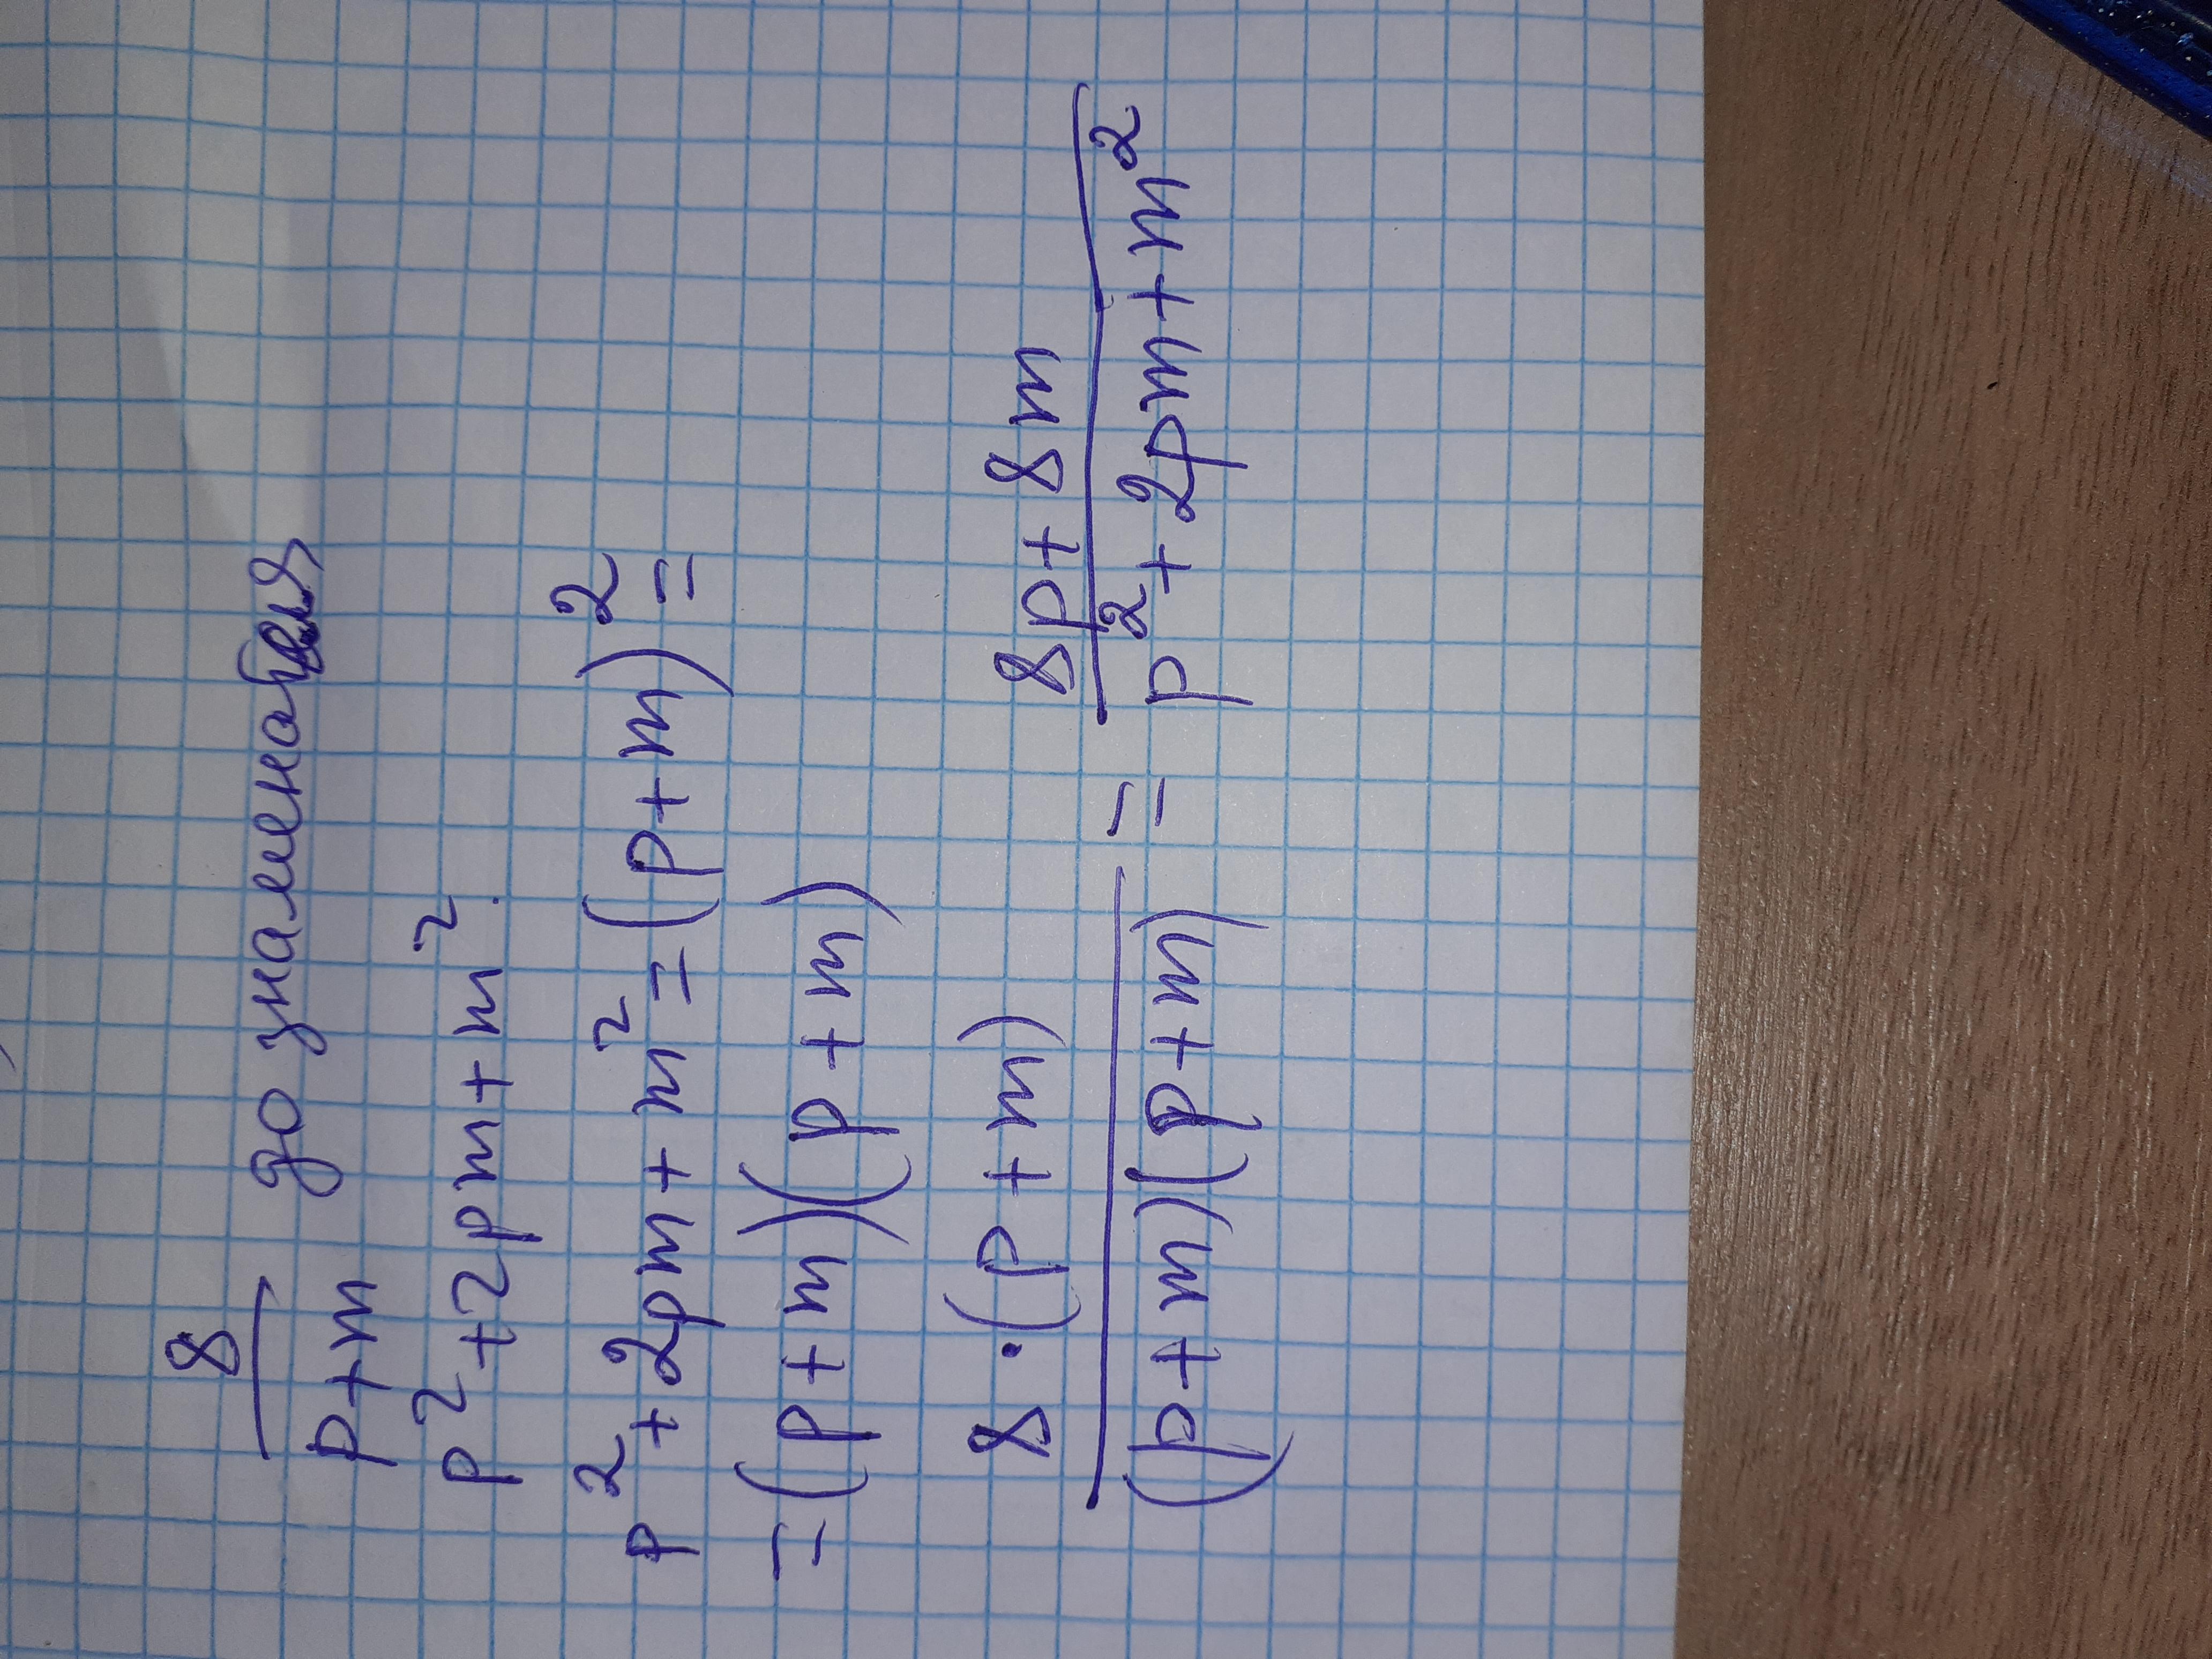 8/(p+m) до знаменателя
p²+2pm+m².
p²+2pm+m²=(p+m)²=
=(p+m)(p+m)
(8·(p+m))/((p+m)(p+m)) = (8p+8m)/(p²+2pm+m²)